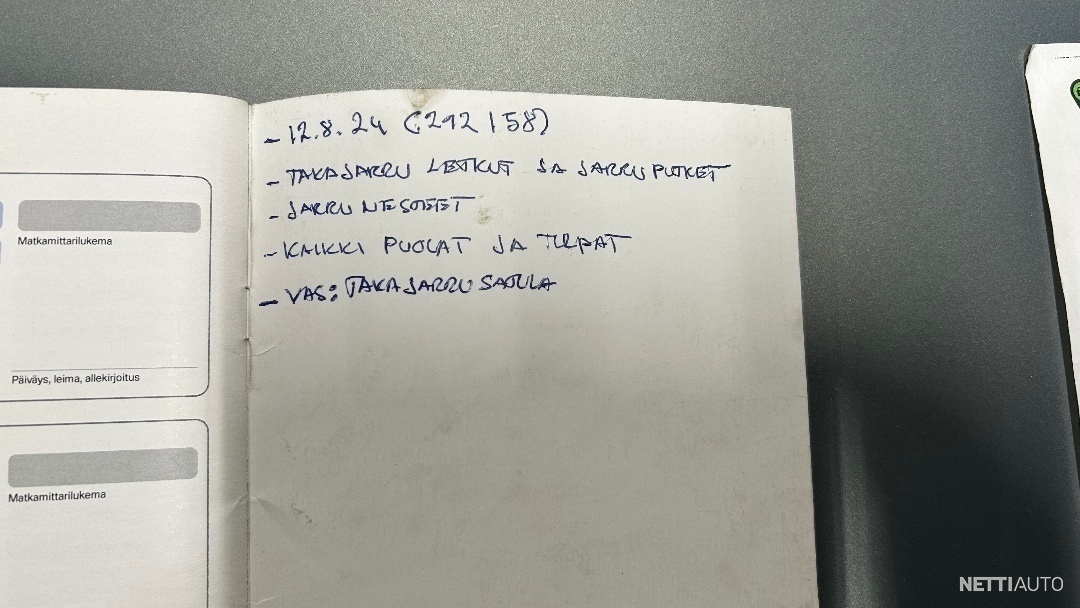 - 12.8.24 (292 158)
- TAKAJARRU LETKUT JA JARRUPUTKET
- JARRU NESTEET
- KAIKKI PUOLAT JA TULPAT
- VAS: TAKAJARRU SATULA
Matkamittarilukema
Päiväys, leima, allekirjoitus
Matkamittarilukema
NETTIAUTO